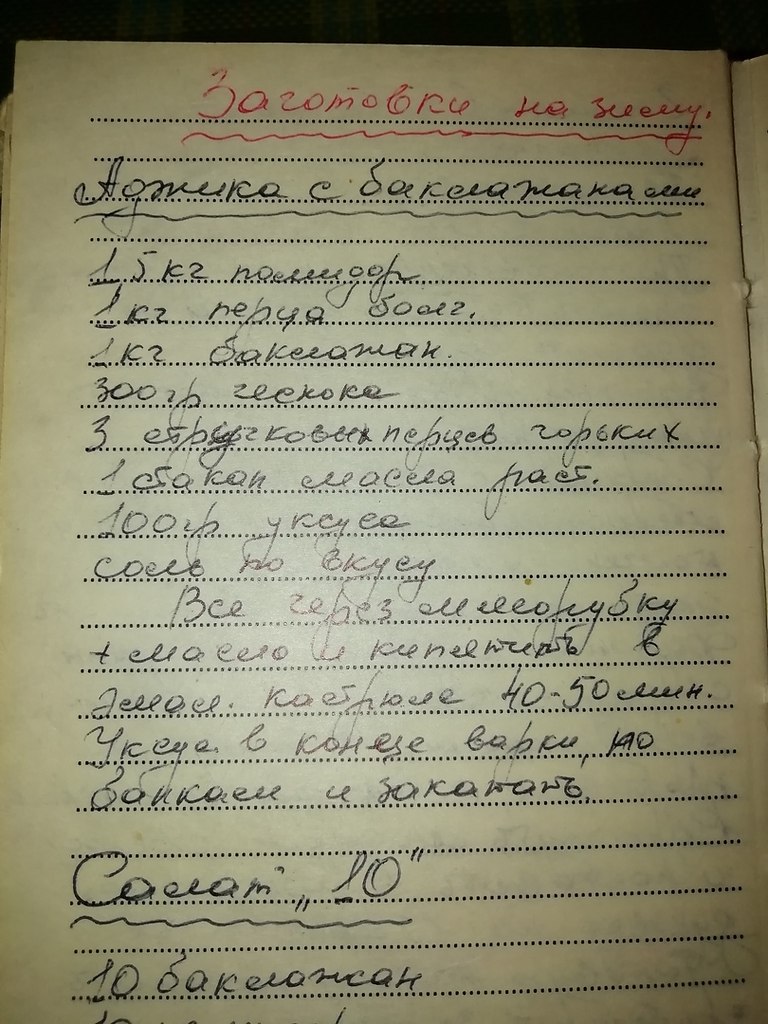 Заготовки на зиму.
Аджика с баклажанами
1,5 кг помидор
1 кг перца болг.
1 кг баклажан.
300 гр чеснока
3 стручковых перцев горьких
1 стакан масла раст.
100 гр уксуса
соль по вкусу
Все через мясорубку
+ масло и кипятить в
эмал. кастрюле 40-50 мин.
Уксус в конце варки, по
банкам и закатать.
Салат „10"
10 баклажан
10